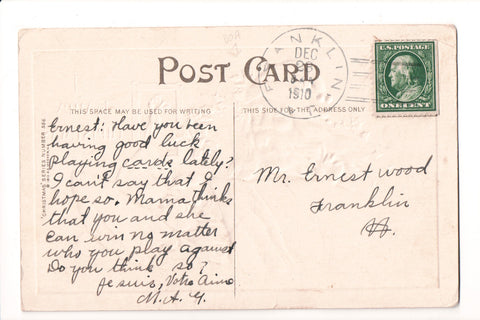 FRANKLIN
DEC
1910
U.S. POSTAGE
ONE CENT
POST CARD
THIS SPACE MAY BE USED FOR WRITING
THIS SIDE FOR THE ADDRESS ONLY
"CHRISTMAS" SERIES NUMBER
Ernest: Have you been
having good luck
playing cards lately?
I can't say that I
hope so. Mama thinks
that you and she
can win no matter
who you play against
Do you think so?
Je suis, Votre Aime
M.A.G.
Mr. Ernest Wood
Franklin